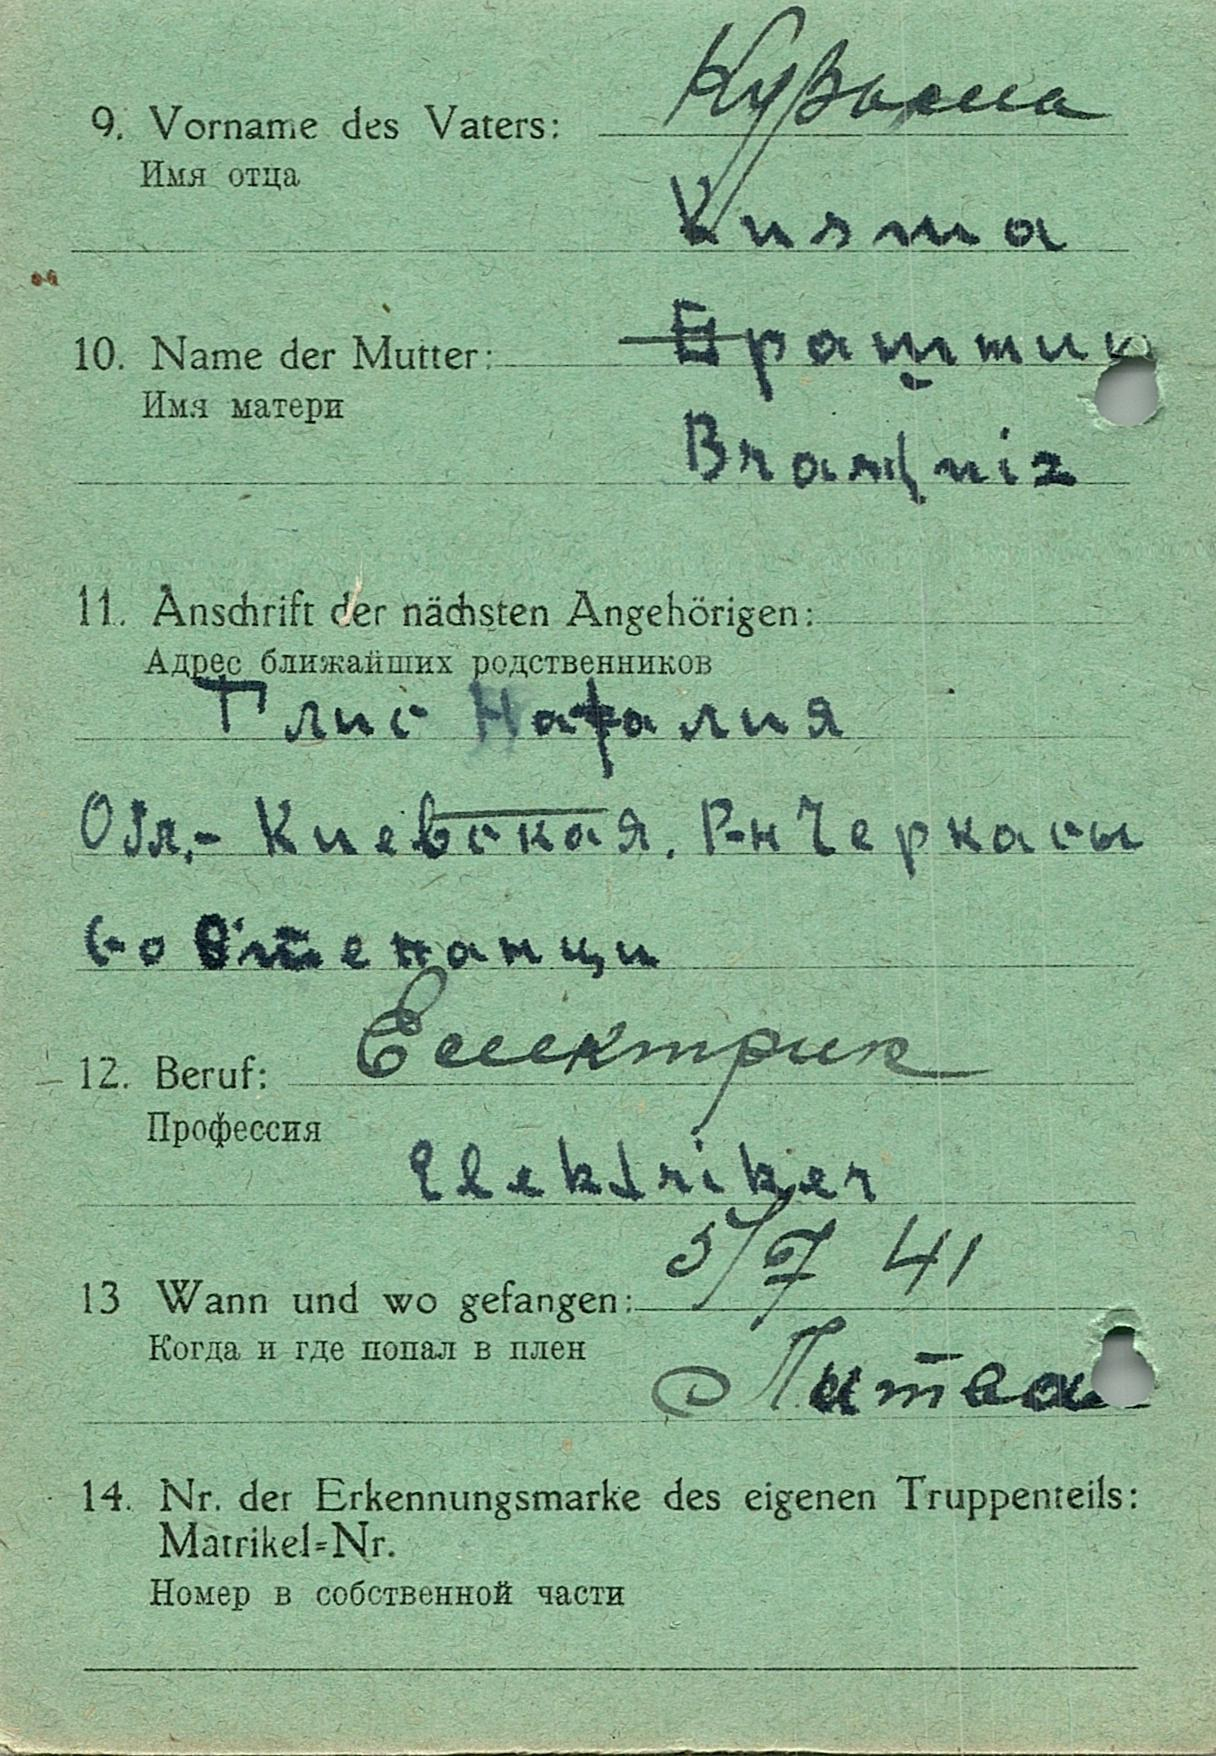 9. Vorname des Vaters: Кузьма
Имя отца
Kusma
10. Name der Mutter:
Имя матери
11. Anschrift der nächsten Angehörigen:
Адрес ближайших родственников
Глис Наталия
Обл.- Киевская. Р-н Черкасы
12. Beruf: Електрик
Профессия
Elektriker
13 Wann und wo gefangen: 5/7 41
Когда и где попал в плен
Литва
14. Nr. der Erkennungsmarke des eigenen Truppenteils:
Matrikel=Nr.
Номер в собственной части